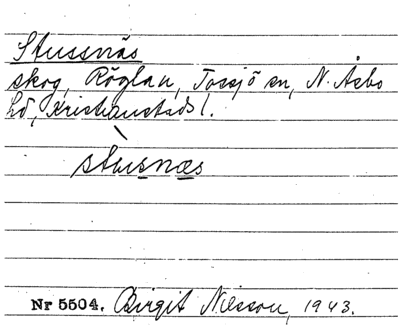 Stussnäs
skog, Röglan, Tossjö sn, N. Åsbo
hd, Kristianstads l.
stusnæs
Nr 5504. Birgit Nilsson, 1943.